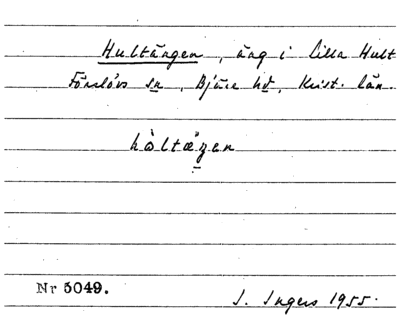 Hultängen, äng i Lilla Hult
Förslövs sn, Bjäre hd, Krist. län.
hòltæ̀ŋen
Nr 5049.
I. Ingers 1955.